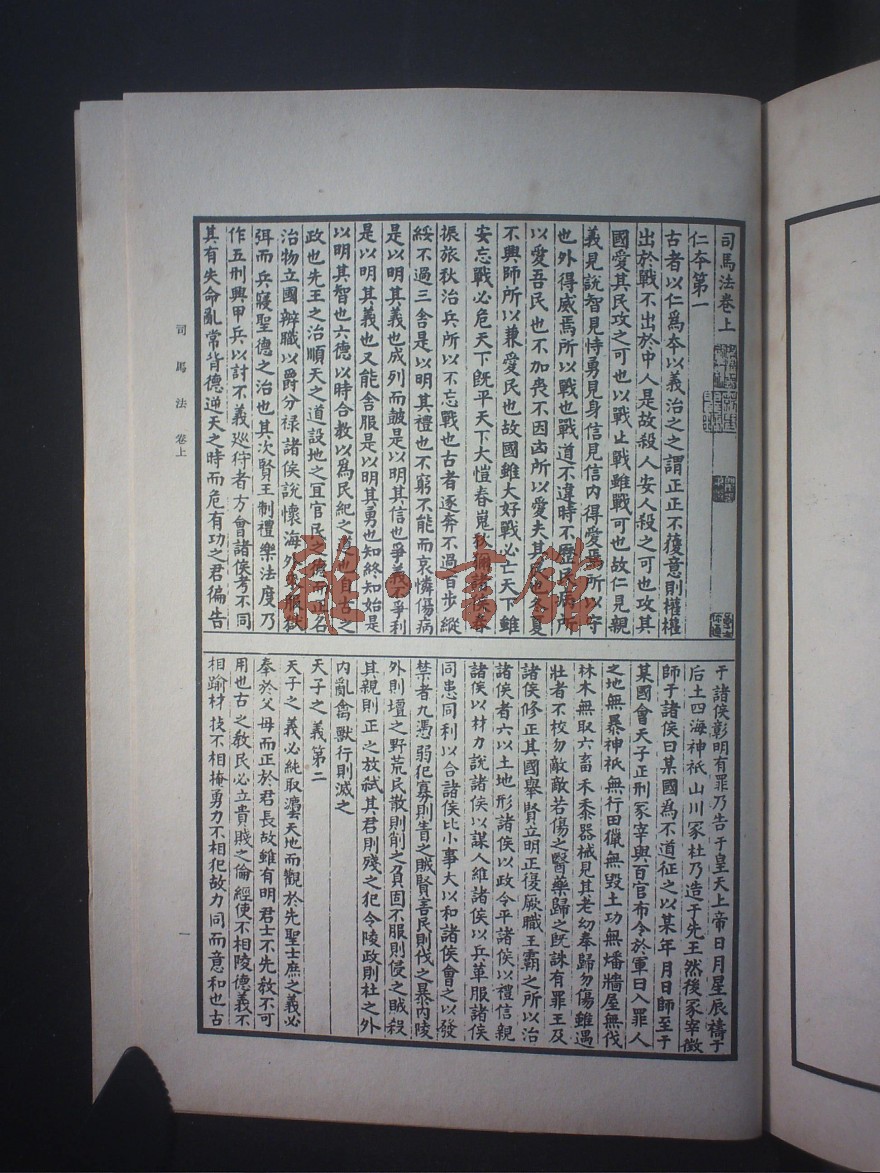 司馬法卷上
仁本第一
古者以仁爲本以義治之之謂正正不獲意則權權
出於戰不出於中人是故殺人安人殺之可也攻其
國愛其民攻之可也以戰止戰雖戰可也故仁見親
義見說智見恃勇見身信見信內得愛焉所以守
也外得威焉所以戰也戰道不違時不歷民病所
以愛吾民也不加喪不因凶所以愛夫其民也冬夏
不興師所以兼愛民也故國雖大好戰必亡天下雖
安忘戰必危天下旣平天下大愷春蒐秋獮諸侯春
振旅秋治兵所以不忘戰也古者逐奔不過百步縱
綏不過三舍是以明其禮也不窮不能而哀憐傷病
是以明其義也成列而鼓是以明其信也爭義不爭利
是以明其義也又能舍服是以明其勇也知終知始是
以明其智也六德以時合敎以爲民紀之道也自古之
政也先王之治順天之道設地之宜官民之德而正名
治物立國辨職以爵分禄諸侯說懷海外來服獄
弭而兵寢聖德之治也其次賢王制禮樂法度乃
作五刑興甲兵以討不義巡狩者方會諸侯考不同
其有失命亂常背德逆天之時而危有功之君徧告
于諸侯彰明有罪乃告于皇天上帝日月星辰禱于
后土四海神祇山川冢社乃造于先王然後冢宰徵
師于諸侯曰某國爲不道征之以某年月日師至于
某國會天子正刑冢宰與百官布令於軍曰入罪人
之地無暴神祇無行田獵無毀土功無燔牆屋無伐
林木無取六畜禾黍器械見其老幼奉歸勿傷雖遇
壯者不校勿敵敵若傷之醫藥歸之旣誅有罪王及
諸侯修正其國舉賢立明正復厥職王霸之所以治
諸侯者六以土地形諸侯以政令平諸侯以禮信親
諸侯以材力說諸侯以謀人維諸侯以兵革服諸侯
同患同利以合諸侯比小事大以和諸侯會之以發
禁者九憑弱犯寡則眚之賊賢害民則伐之暴內陵
外則壇之野荒民散則削之負固不服則侵之賊殺
其親則正之放弒其君則殘之犯令陵政則杜之外
內亂禽獸行則滅之
天子之義第二
天子之義必純取灋天地而觀於先聖士庶之義必
奉於父母而正於君長故雖有明君士不先敎不可
用也古之敎民必立貴賤之倫經使不相陵德義不
相踰材技不相掩勇力不相犯故力同而意和也古
司馬法 卷上
一
龍書館